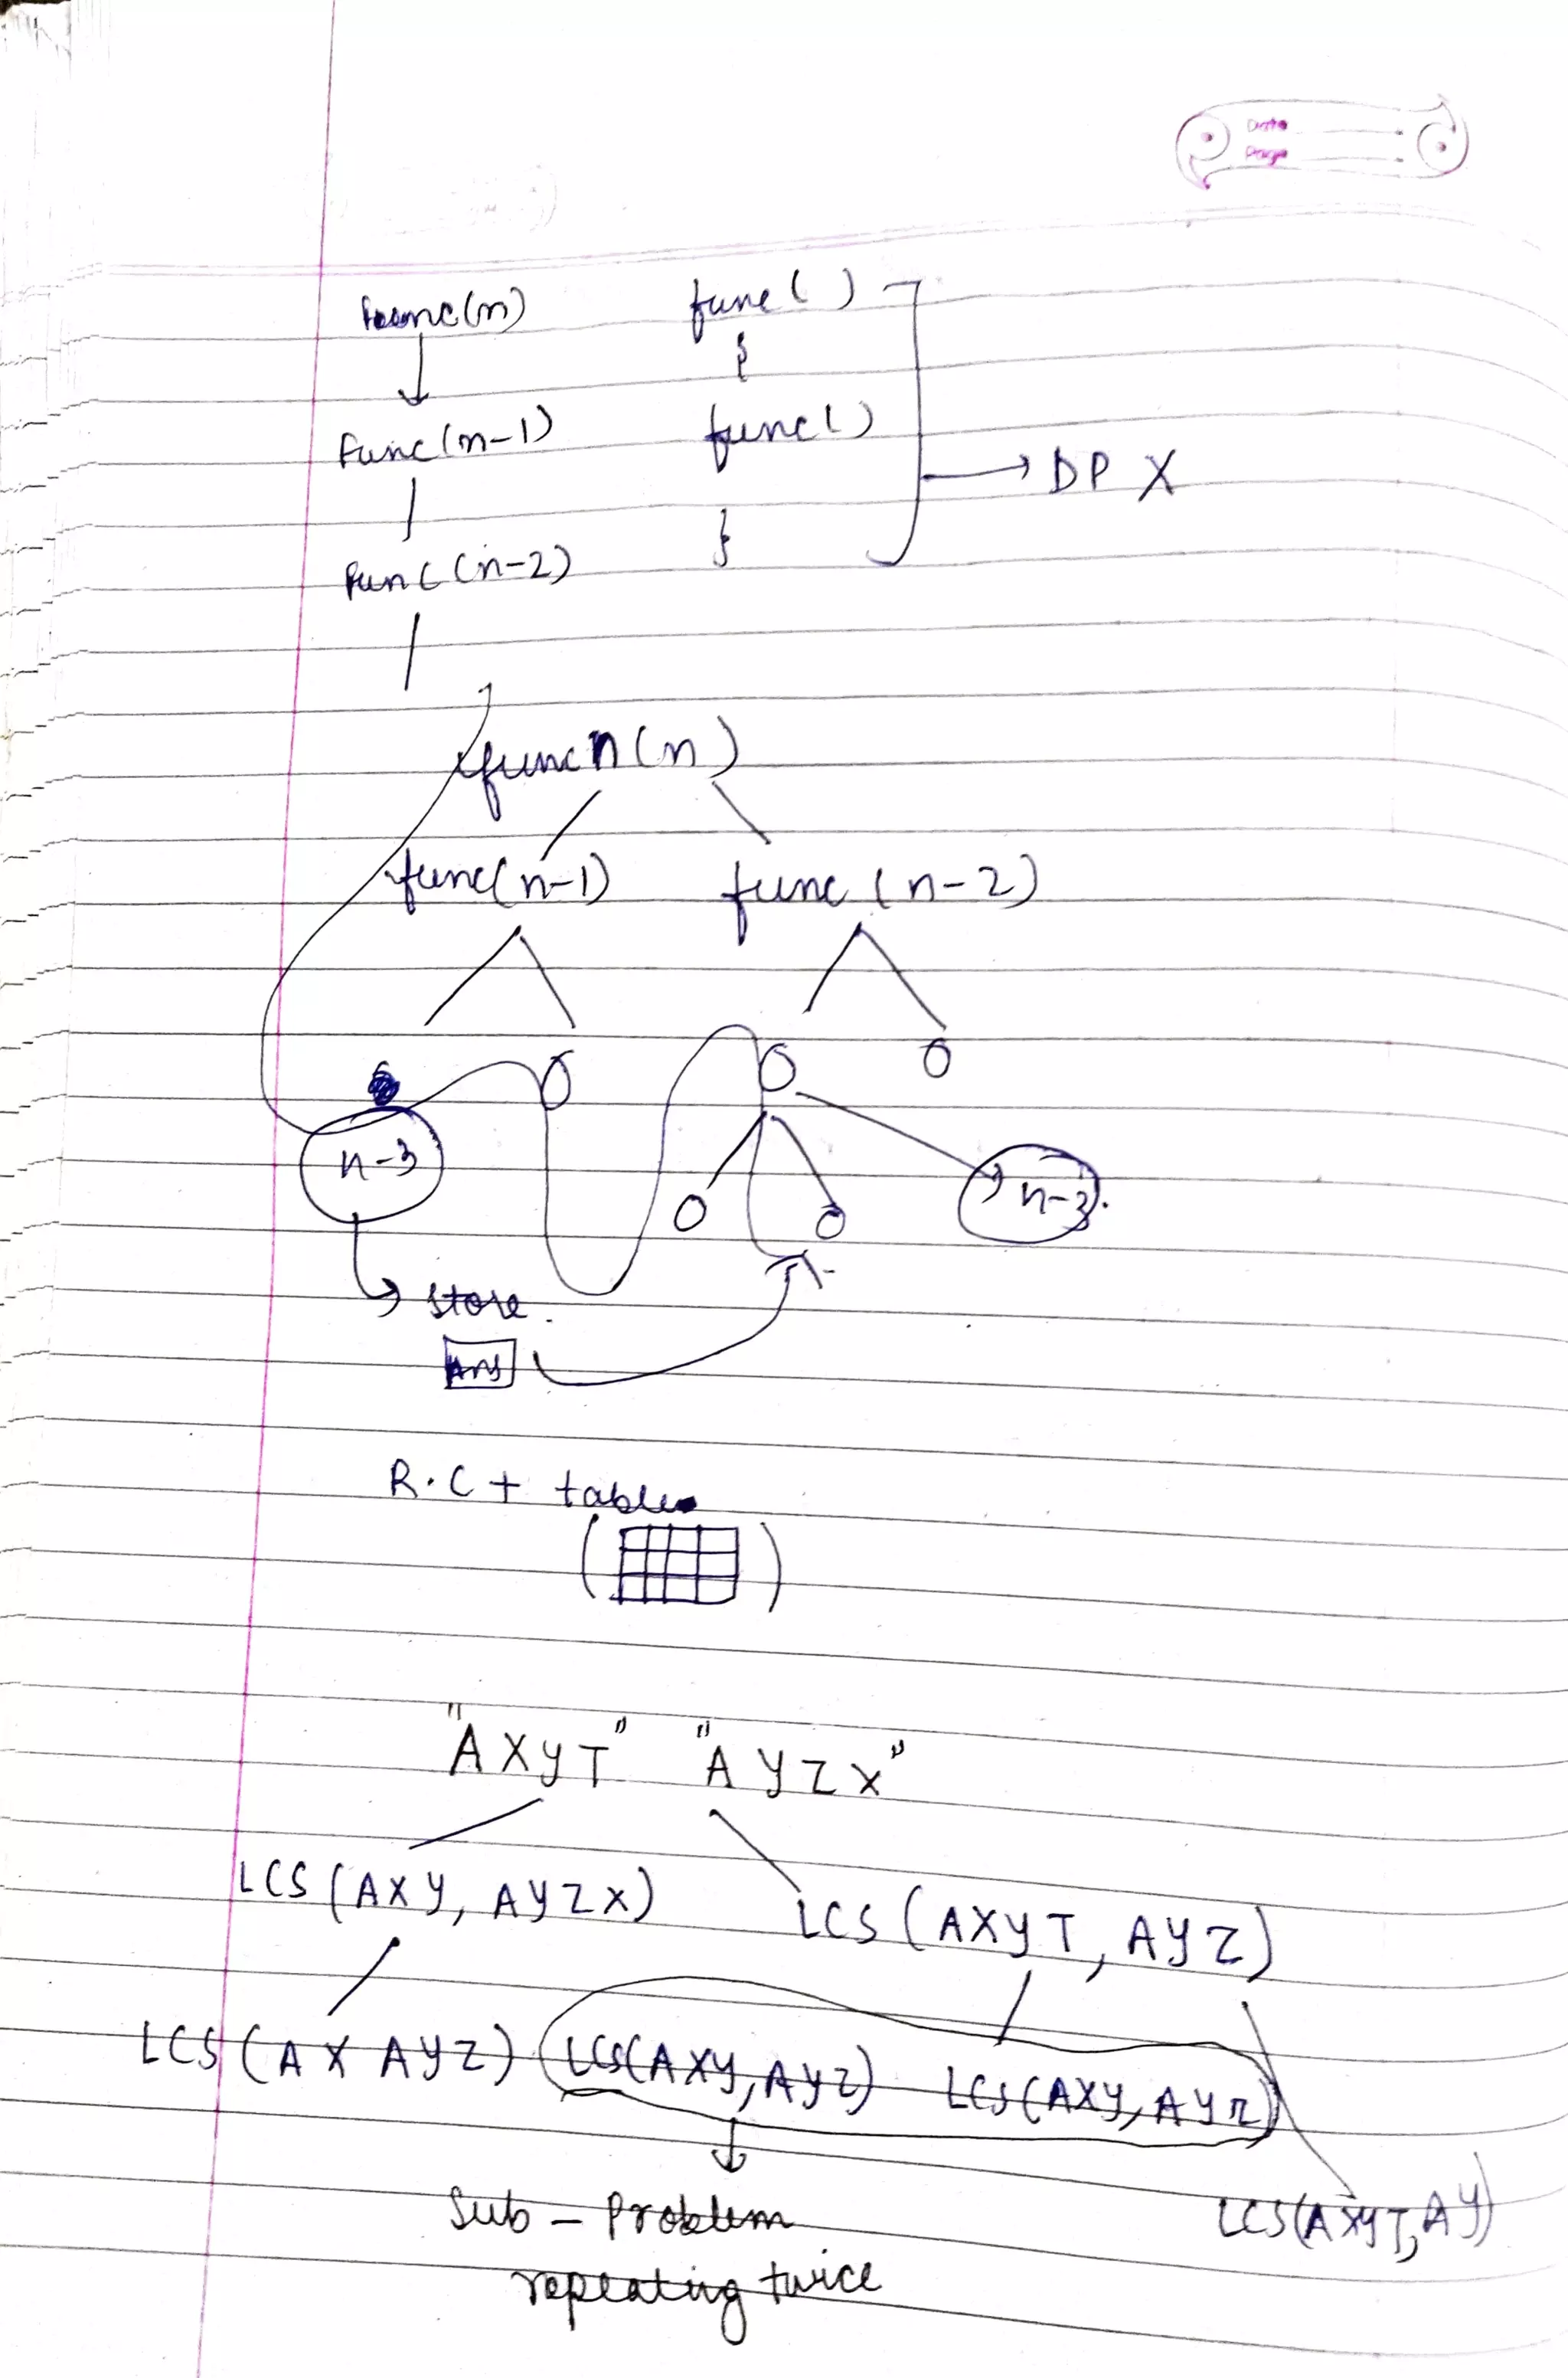 Date
Page
func(n) func( )
{
func(n-1) func()
DP X
}
func(n-2)
func(n)
func(n-1) func(n-2)
0 0 0
n-3 n-3
0 0
store.
Ans
R.C + table
( )
"AXYT" "AYZX"
LCS(AXY, AYZX) LCS(AXYT, AYZ)
LCS(AX AYZ) LCS(AXY, AYZ) LCS(AXY, AYZ)
LCS(AXYT, AY)
Sub - Problem
repeating twice